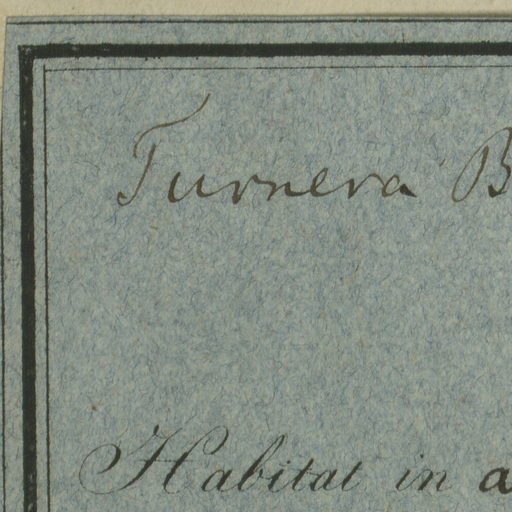 Turnera B
Habitat in a